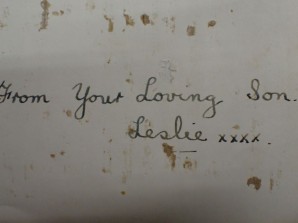 From Your Loving Son.
Leslie xxxx.